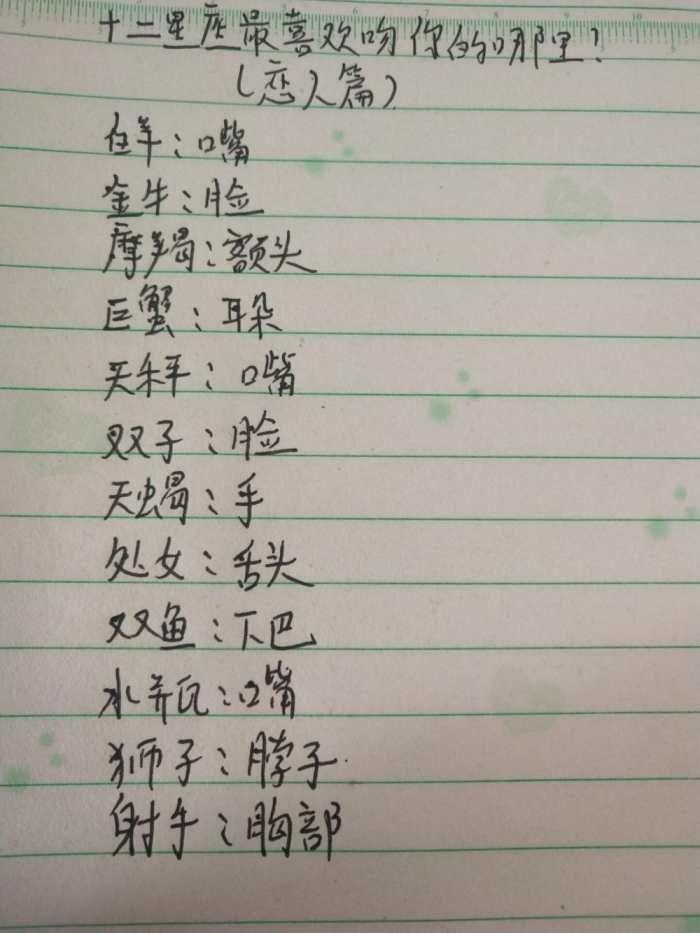 十二星座最喜欢吻你的哪里?
(恋人篇)
白羊:嘴
金牛:脸
摩羯:额头
巨蟹:耳朵
天秤:嘴
双子:脸
天蝎:手
处女:舌头
双鱼:下巴
水瓶:嘴
狮子:脖子
射手:胸部